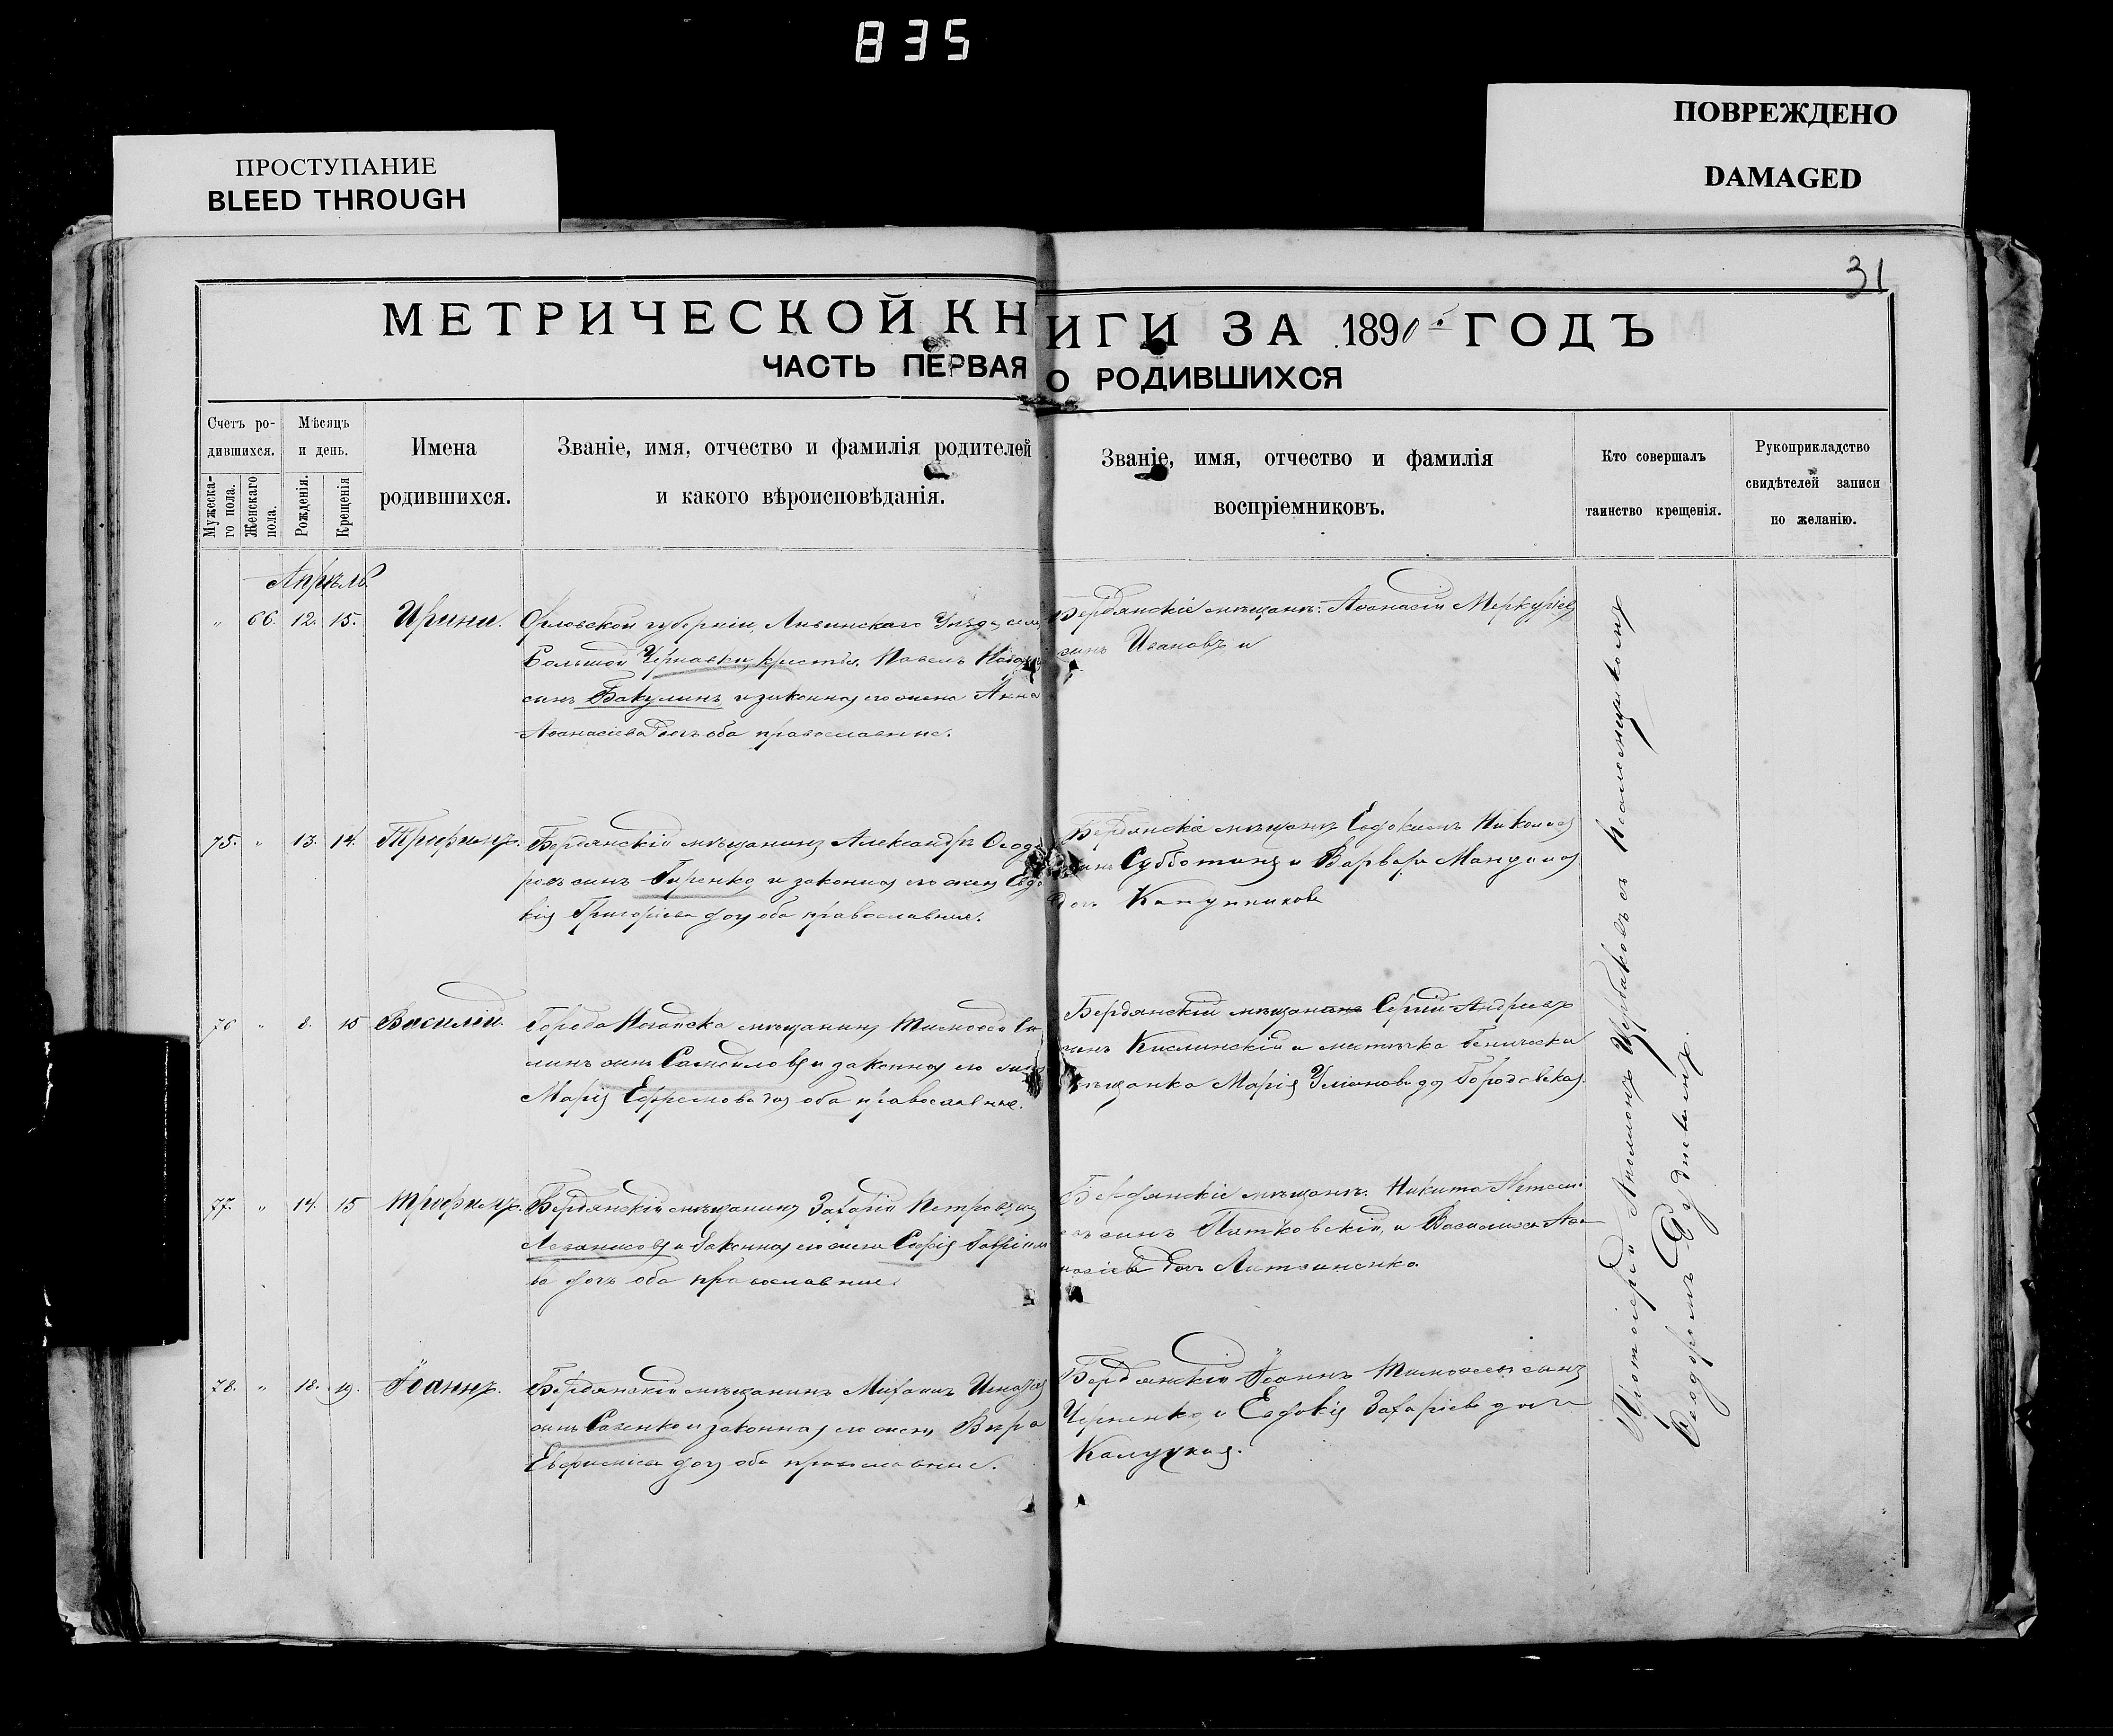 835
ПРОСТУПАНИЕ
BLEED THROUGH
ПОВРЕЖДЕНО
DAMAGED
31
МЕТРИЧЕСКОЙ КНИГИ ЗА 1890 ГОДЪ
ЧАСТЬ ПЕРВАЯ О РОДИВШИХСЯ
Счетъ ро-
дившихся.
Мужеска-
го пола.
Женскаго
пола.
Мѣсяцъ
и день.
Рожденія.
Крещенія
Имена
родившихся.
Званіе, имя, отчество и фамилія родителей
и какого вѣроисповѣданія.
Званіе, имя, отчество и фамилія
воспріемниковъ.
Кто совершалъ
таинство крещенія.
Рукоприкладство
свидѣтелей записи
по желанію.
Апрѣль.
" 66. 12. 15. Ирина.
Орловской губерніи, Ливинскаго Уѣзда, села
Большой Чернавки, крестья. Павелъ
сынъ Бакулинъ и законная его жена Анна
Аѳанасіева дочь оба православные.
Бердянскіе мѣщане: Аѳанасій Меркуріев
сынъ Ивановъ и
75. " 13. 14.
Бердянскій мѣщанинъ Александръ Ѳеодо
ровъ сынъ Гиренко и законная его жена Евдо
кія Григоріева дочь оба православные.
Бердянскіе мѣщане Евдокимъ Николаев
сынъ Субботинъ и Варвара
дочь
76 " 8. 15 Василій.
Города Ногайска мѣщанинъ Тимоѳей
сынъ Самойловъ и законная его жена
Марія Ефремова дочь оба православные.
Бердянскій мѣщанинъ Сергій Андреевъ
сынъ Кислинскій и мѣстечка Геническа
мѣщанка Марія дочь Городовская.
77. " 14. 15 Трофимъ.
Бердянскій мѣщанинъ Захарій Петровъ сынъ
и законная его жена Софія Гавріило
ва дочь оба православные.
Бердянскіе мѣщане: Никита
сынъ Пятковскій, и Василиса Аѳа
насіева дочь Литвиненко.
78. " 18. 19. Іоаннъ.
Бердянскій мѣщанинъ Михаилъ
сынъ Савенко и законная его жена Вѣра
дочь оба православные.
Бердянскій Іоаннъ Тимоѳеевъ сынъ
Черненко, и Евдокія Захаріева дочь
Калуцкая.
Протоіерей Щербаковъ съ псаломщикомъ
Ѳеодоромъ